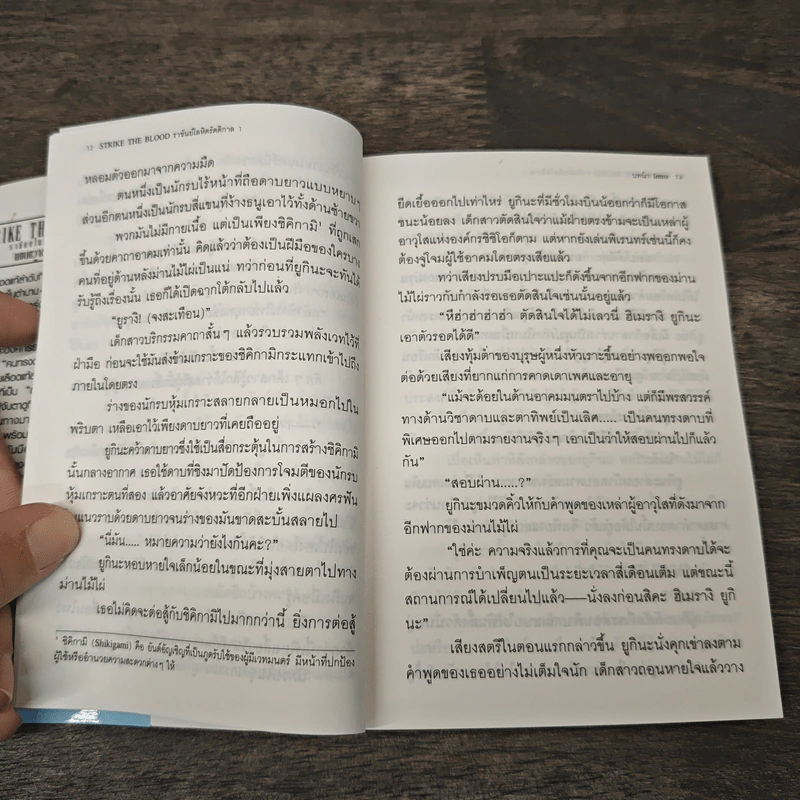 12 STRIKE THE BLOOD ราชันย์โลหิตรัตติกาล 1
หลอมตัวออกมาจากความมืด
ตนหนึ่งเป็นนักรบไร้หน้าที่ถือดาบยาวแบบหยาบๆ
ส่วนอีกตนหนึ่งเป็นนักรบสี่แขนที่ง้างธนูเอาไว้ทั้งด้านซ้ายขวา
พวกมันไม่มีกายเนื้อ แต่เป็นเพียงชิคิกามิ¹ ที่ถูกเสก
ขึ้นด้วยคาถาอาคมเท่านั้น คิดแล้วว่าต้องเป็นฝีมือของใครบาง
คนที่อยู่ด้านหลังม่านไม้ไผ่เป็นแน่ ทว่าก่อนที่ยูกินะจะทันได้
รับรู้ถึงเรื่องนั้น เธอก็ได้เปิดฉากโต้กลับไปแล้ว
“ยูรางิ! (จงสะเทือน)”
เด็กสาวบริกรรมคาถาสั้นๆ แล้วรวบรวมพลังเวทไว้ที่
ฝ่ามือ ก่อนจะใช้มันส่งข้ามเกราะของชิคิกามิกระแทกเข้าไปถึง
ภายในโดยตรง
ร่างของนักรบหุ้มเกราะสลายกลายเป็นหมอกไปใน
พริบตา เหลือเอาไว้เพียงดาบยาวที่เคยถืออยู่
ยูกินะคว้าดาบยาวซึ่งใช้เป็นสื่อกระตุ้นในการสร้างชิคิกามิ
นั้นกลางอากาศ เธอใช้ดาบที่ชิงมาปัดป้องการโจมตีของนักรบ
หุ้มเกราะตนที่สอง แล้วอาศัยจังหวะที่อีกฝ่ายเพิ่งแผลงศรฟัน
แนวราบด้วยดาบยาวจนร่างของมันขาดสะบั้นสลายไป
“นี่มัน..... หมายความว่ายังไงกันคะ?”
ยูกินะหอบหายใจเล็กน้อยในขณะที่มุ่งสายตาไปทาง
ม่านไม้ไผ่
เธอไม่คิดจะต่อสู้กับชิคิกามิไปมากกว่านี้ ยิ่งการต่อสู้
¹ ชิคิกามิ (Shikigami) คือ ยันต์อัญเชิญที่เป็นภูตรับใช้ของผู้มีเวทมนตร์ มีหน้าที่ปกป้อง
ผู้ใช้หรืออำนวยความสะดวกต่างๆ ให้
บทนำ Intro 13
ยืดเยื้อออกไปเท่าไหร่ ยูกินะที่มีชั่วโมงบินน้อยกว่าก็มีโอกาส
ชนะน้อยลง เด็กสาวตัดสินใจว่าแม้ฝ่ายตรงข้ามจะเป็นเหล่าผู้
อาวุโสแห่งองค์กรชิชิโอก็ตาม แต่หากยังเล่นพิเรนทร์เช่นนี้ก็คง
ต้องจู่โจมผู้ใช้อาคมโดยตรงเสียแล้ว
ทว่าเสียงปรบมือเปาะแปะก็ดังขึ้นจากอีกฟากของม่าน
ไม้ไผ่ราวกับกำลังรอเธอตัดสินใจเช่นนั้นอยู่แล้ว
“หึฮ่าฮ่าฮ่าฮ่า ตัดสินใจได้ไม่เลวนี่ ฮิเมรางิ ยูกินะ
เอาตัวรอดได้ดี”
เสียงทุ้มต่ำของบุรุษผู้หนึ่งหัวเราะขึ้นอย่างพออกพอใจ
ต่อด้วยเสียงที่ยากแก่การคาดเดาเพศและอายุ
“แม้จะด้อยในด้านอาคมมนตราไปบ้าง แต่ก็มีพรสวรรค์
ทางด้านวิชาดาบและตาทิพย์เป็นเลิศ..... เป็นคนทรงดาบที่
พิเศษออกไปตามรายงานจริงๆ เอาเป็นว่าให้สอบผ่านไปก็แล้ว
กัน”
“สอบผ่าน.....?”
ยูกินะขมวดคิ้วให้กับคำพูดของเหล่าผู้อาวุโสที่ดังมาจาก
อีกฟากของม่านไม้ไผ่
“ใช่ค่ะ ความจริงแล้วการที่คุณจะเป็นคนทรงดาบได้จะ
ต้องผ่านการบำเพ็ญตนเป็นระยะเวลาสี่เดือนเต็ม แต่ขณะนี้
สถานการณ์ได้เปลี่ยนไปแล้ว——นั่งลงก่อนสิคะ ฮิเมรางิ ยูกิ
นะ”
เสียงสตรีในตอนแรกกล่าวขึ้น ยูกินะนั่งคุกเข่าลงตาม
คำพูดของเธออย่างไม่เต็มใจนัก เด็กสาวถอนหายใจแล้ววาง